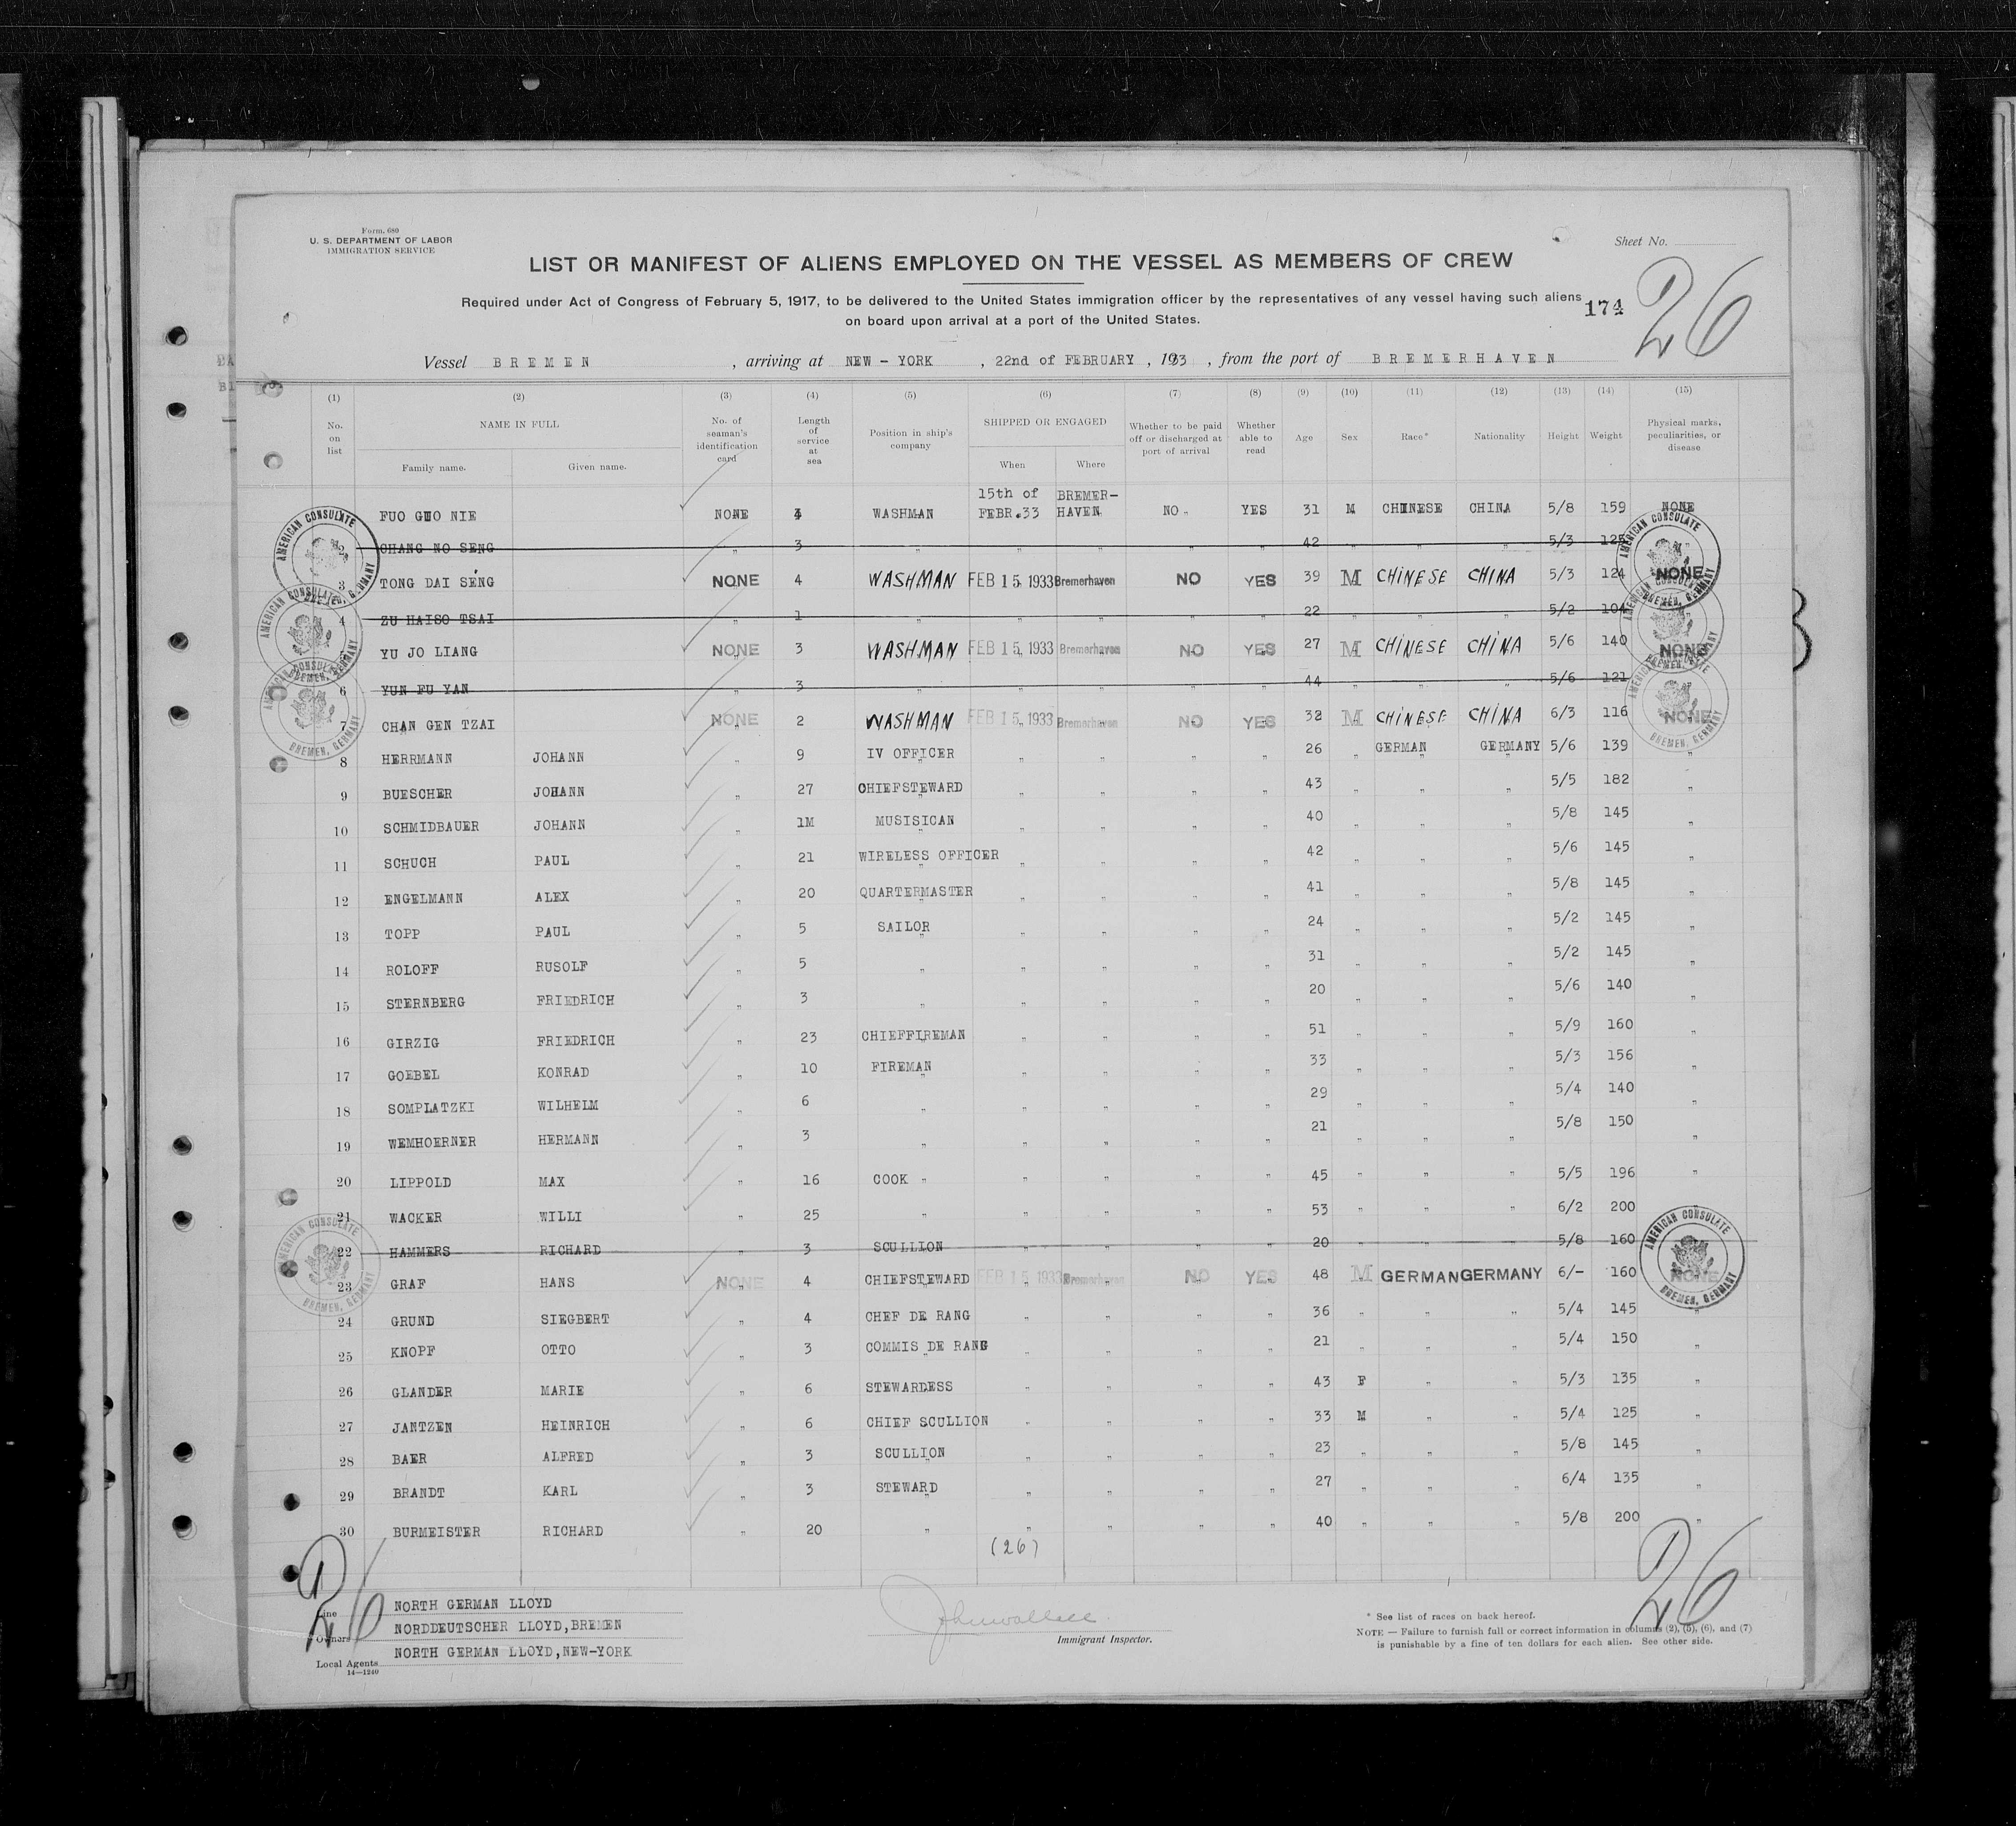 Form. 680
U. S. DEPARTMENT OF LABOR
IMMIGRATION SERVICE
Sheet No.
LIST OR MANIFEST OF ALIENS EMPLOYED ON THE VESSEL AS MEMBERS OF CREW
Required under Act of Congress of February 5, 1917, to be delivered to the United States immigration officer by the representatives of any vessel having such aliens
on board upon arrival at a port of the United States.
174
26
Vessel BREMEN , arriving at NEW - YORK , 22nd of FEBRUARY , 1933 , from the port of BREMERHAVEN
(1) (2) (3) (4) (5) (6) (7) (8) (9) (10) (11) (12) (13) (14) (15)
No. on list NAME IN FULL Family name. Given name. No. of seaman's identification card Length of service at sea Position in ship's company SHIPPED OR ENGAGED When Where Whether to be paid off or discharged at port of arrival Whether able to read Age Sex Race* Nationality Height Weight Physical marks, peculiarities, or disease
FUO GUO NIE NONE 4 WASHMAN 15th of FEBR.33 BREMER-HAVEN NO YES 31 M CHINESE CHINA 5/8 159 NONE
2 CHANG NO SENG " 3 " " " " " 42 " " " 5/3 125
3 TONG DAI SENG NONE 4 WASHMAN FEB 15 1933 Bremerhaven NO YES 39 M CHINESE CHINA 5/3 124 NONE
4 ZU HAISO TSAI " 1 " " " " " 22 " " " 5/2 104
YU JO LIANG NONE 3 WASHMAN FEB 15 1933 Bremerhaven NO YES 27 M CHINESE CHINA 5/6 140 NONE
6 YUN FU YAN " 3 " " " " " 44 " " " 5/6 121
7 CHAN GEN TZAI NONE 2 WASHMAN FEB 15 1933 Bremerhaven NO YES 32 M CHINESE CHINA 6/3 116 NONE
8 HERRMANN JOHANN " 9 IV OFFICER " " " " 26 " GERMAN GERMANY 5/6 139 "
9 BUESCHER JOHANN " 27 CHIEFSTEWARD " " " " 43 " " " 5/5 182 "
10 SCHMIDBAUER JOHANN " 1M MUSISICAN " " " " 40 " " " 5/8 145 "
11 SCHUCH PAUL " 21 WIRELESS OFFICER " " " " 42 " " " 5/6 145 "
12 ENGELMANN ALEX " 20 QUARTERMASTER " " " " 41 " " " 5/8 145 "
13 TOPP PAUL " 5 SAILOR " " " " 24 " " " 5/2 145 "
14 ROLOFF RUSOLF " 5 " " " " " 31 " " " 5/2 145 "
15 STERNBERG FRIEDRICH " 3 " " " " " 20 " " " 5/6 140 "
16 GIRZIG FRIEDRICH " 23 CHIEFFIREMAN " " " " 51 " " " 5/9 160 "
17 GOEBEL KONRAD " 10 FIREMAN " " " " 33 " " " 5/3 156 "
18 SOMPLATZKI WILHELM " 6 " " " " " 29 " " " 5/4 140 "
19 WEMHOERNER HERMANN " 3 " " " " " 21 " " " 5/8 150 "
20 LIPPOLD MAX " 16 COOK " " " " " 45 " " " 5/5 196 "
21 WACKER WILLI " 25 " " " " " 53 " " " 6/2 200
22 HAMMERS RICHARD " 3 SCULLION " " " " 20 " " " 5/8 160
23 GRAF HANS NONE 4 CHIEFSTEWARD FEB 15 1933 Bremerhaven NO YES 48 M GERMAN GERMANY 6/- 160 NONE
24 GRUND SIEGBERT " 4 CHEF DE RANG " " " " 36 " " " 5/4 145 "
25 KNOPF OTTO " 3 COMMIS DE RANG " " " " 21 " " " 5/4 150 "
26 GLANDER MARIE " 6 STEWARDESS " " " " 43 F " " 5/3 135 "
27 JANTZEN HEINRICH " 6 CHIEF SCULLION " " " " 33 M " " 5/4 125 "
28 BAER ALFRED " 3 SCULLION " " " " 23 " " " 5/8 145 "
29 BRANDT KARL " 3 STEWARD " " " " 27 " " " 6/4 135 "
30 BURMEISTER RICHARD " 20 " " " " " 40 " " " 5/8 200 "
(26)
AMERICAN CONSULATE BREMEN, GERMANY
AMERICAN CONSULATE BREMEN, GERMANY
AMERICAN CONSULATE BREMEN, GERMANY
AMERICAN CONSULATE BREMEN, GERMANY
AMERICAN CONSULATE BREMEN, GERMANY
AMERICAN CONSULATE BREMEN, GERMANY
AMERICAN CONSULATE BREMEN, GERMANY
AMERICAN CONSULATE BREMEN, GERMANY
26
26
Line NORTH GERMAN LLOYD
Owners NORDDEUTSCHER LLOYD,BREMEN
Local Agents NORTH GERMAN LLOYD,NEW-YORK
14—1240
Immigrant Inspector.
* See list of races on back hereof.
NOTE — Failure to furnish full or correct information in columns (2), (5), (6), and (7)
is punishable by a fine of ten dollars for each alien. See other side.